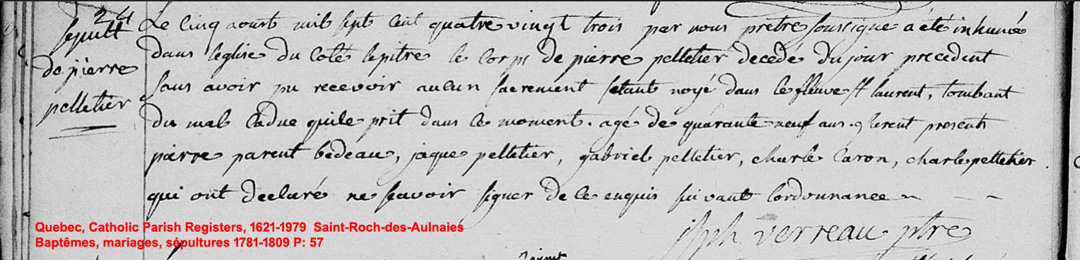 24
sepult
de pierre
pelletier
Le Cinq aoust mil sept cent quatre vingt trois par nous prêtre soussigné a été inhumé
dans leglise du coté lepitre le corps de pierre pelletier decedé du jour precedent
sans avoir pu recevoir aucun sacrement setant noyé dans le fleuve st laurent, tombant
du mal qui le prit dans le moment. agé de quarante neuf ans. furent presents
pierre parent bedeau, jaque pelletier, gabriel pelletier, charle Caron, charle pelletier
qui ont declaré ne scavoir signer de ce enquis suivant lordonnance
Jph verreau ptre
Quebec, Catholic Parish Registers, 1621-1979 Saint-Roch-des-Aulnaies
Baptêmes, mariages, sépultures 1781-1809 P: 57